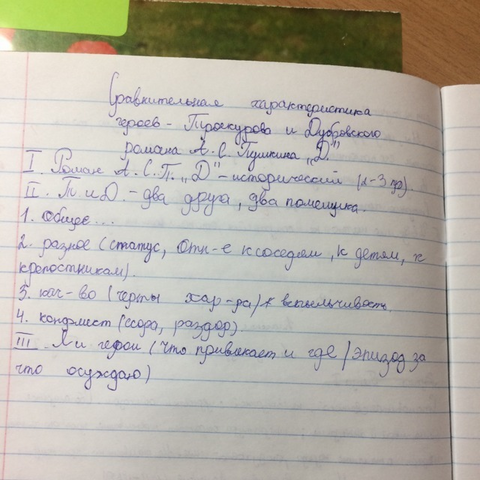 Сравнительная характеристика
героев - Троекурова и Дубровского
романа А. С. Пушкина „Д"
I Роман А. С. П. „Д" - исторический
II. Т и Д. - два друга, два помещика.
1. Общее...
2. разное (статус, отн-е к соседям, к детям, к
крепостникам).
3. кач-во (черты хар-ра) вспыльчивость.
4. конфликт (ссора, раздор)
III герои (что привлекает и где / эпизод за
что осуждаю)